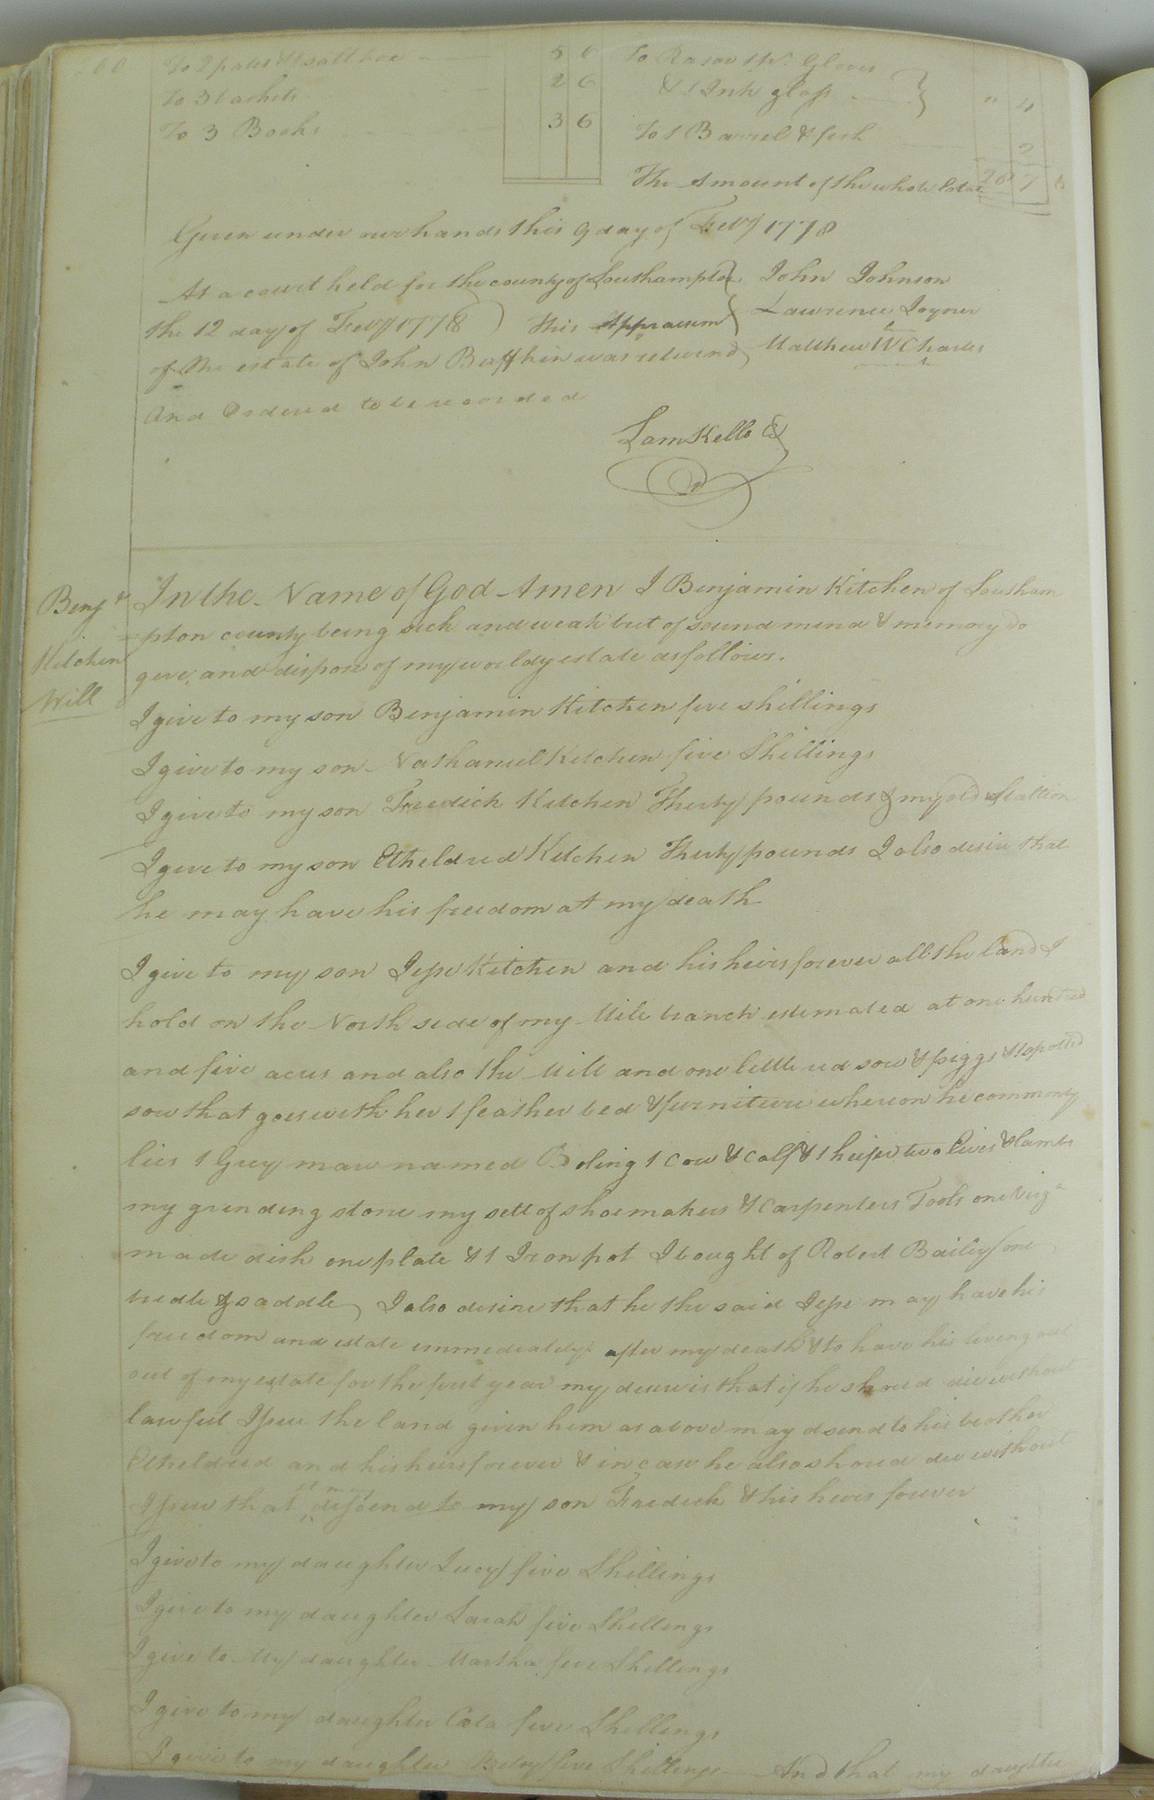 To 3 Books 3 6
To Rasor 1 pr. Gloves
& 1 Ink glass " 4
To 1 Barrel & fish 2
The Amount of the whole Estate 7
Given under our hands this 9 day of Feby 1778
At a court held for the county of Southampton
the 12 day of Feby 1778 This Appraism
of the estate of John was returnd
And Ordered to be recorded
John Johnson
Lawrence Joyner
Matthew W Charles
Sam Kello C
Benj
Kitchen
Will
In the Name of God Amen I Benjamin Kitchen of Southam
pton county being sick and weak but of sound mind & memory do
give and dispose of my worldy estate as follows.
I give to my son Benjamin Kitchen five shillings
I give to my son Nathaniel Kitchen five Shillings
I give to my son Fredick Kitchen Thirty pounds & my old Stallion
I give to my son Etheldred Kitchen Thirty pounds I also desire that
he may have his freedom at my death
I give to my son Jesse Kitchen and his heirs forever all the land I
hold on the North side of my Mile branch estemated at one hundred
and five acres and also the Mill and one little red sow & piggs & 1 spotted
sow that goes with her 1 feather bed & furniture whereon he commonly
lies 1 Grey mare named 1 Cow & Calf & 1 heifer two & lambs
my grinding stone my sett of shoemakers & Carpenters Tools one Virga
made dish one plate & 1 Iron pot I bought of Robert Bailey one
bridle & saddle I also desire that he the said Jesse may have his
freedom and estate immediately after my death & to have his living
out of my estate for the first year my desire is that if he shoud die without
lawfull Issue the land given him as above may dsend to his brother
Etheldred and his heirs forever & in case he also shoud die without
Issue that it may dissend to my son Fredick & his heirs forever
I give to my daughter Lucy five Shillings
I give to my daughter Sarah five Shellings
I give to My daughter Martha five Shellings
I give to my daughter five Shellings
I give to my daughter five Shillings And that my daughter